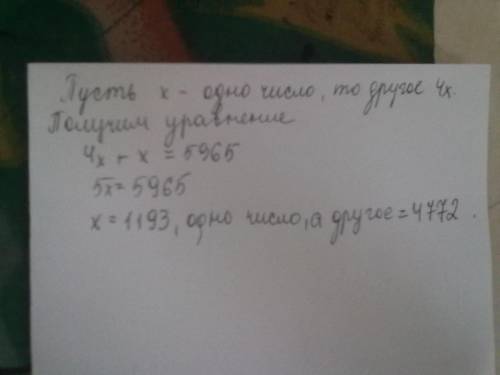 Пусть х - одно число, то другое 4х.
Получим уравнение
4х + х = 5965
5х = 5965
х = 1193, одно число, а другое = 4772.